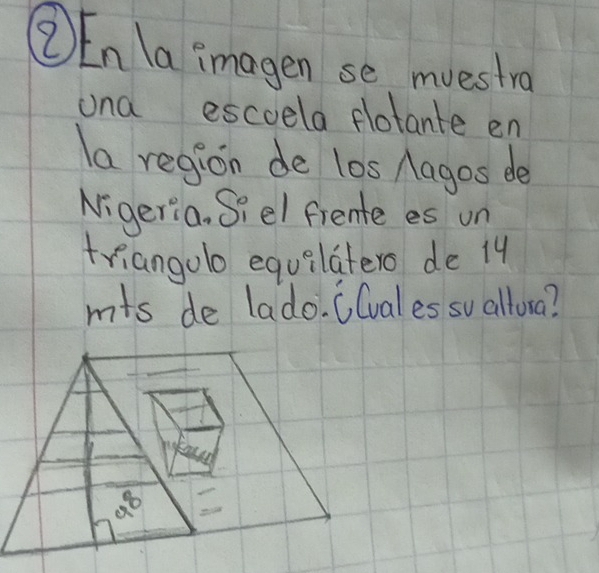 ② En la imagen se muestra
una escuela flotante en
la región de los lagos de
Nigeria. Si el frente es un
triangulo equilátero de 14
mts de lado. ¿Cual es su altura?